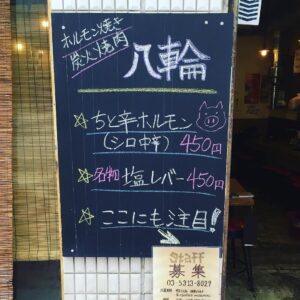 ホルモン焼き
炭火焼肉
八輪
☆ちと辛ホルモン
(シロ中辛) 450円
☆名物 塩レバー 450円
☆ここにも注目!
Staff
募集
03-5313-8027